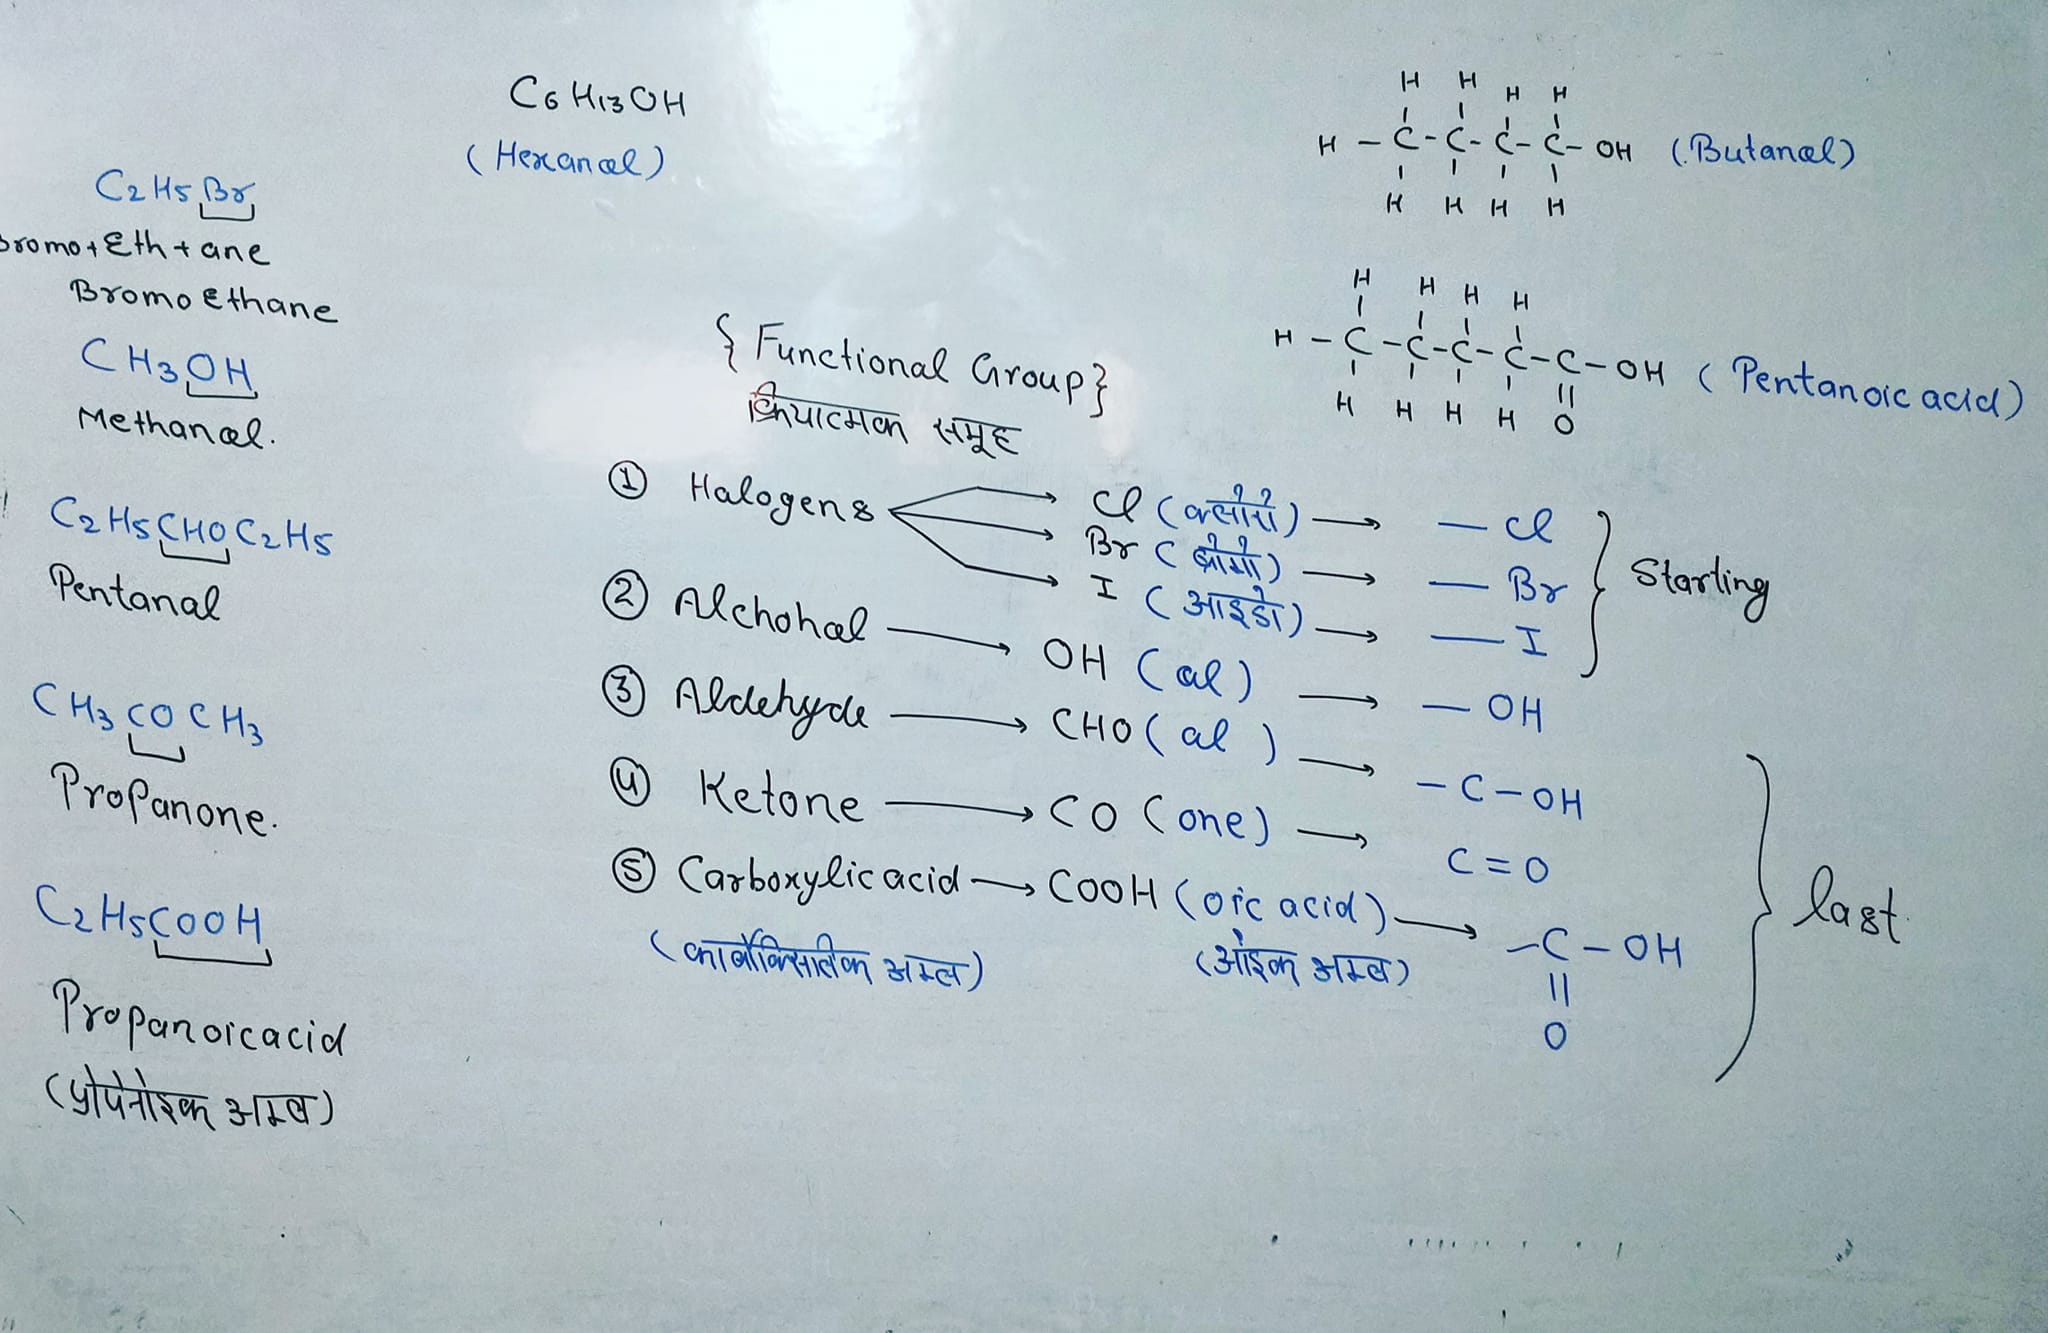 C6H13OH
(Hexanol)
C2H5Br
Bromo+Eth+ane
BromoEthane
CH3OH
Methanol.
C2H5CHOC2H5
Pentanal
CH3COCH3
Propanone.
C2H5COOH
Propanoicacid
(प्रोपेनोइक अम्ल)
H H H H
H-C-C-C-C-OH (Butanol)
H H H H
H H H H
H-C-C-C-C-C-OH (Pentanoic acid)
H H H H O
{Functional Group}
क्रियात्मक समूह
① Halogens → Cl (क्लोरो) → -Cl
Br (ब्रोमो) → -Br } Starting
I (आइडो) → -I
② Alchohol → OH (ol) → -OH
③ Aldehyde → CHO (al) → -C-OH
④ Ketone → CO (one) → C=O
⑤ Carboxylic acid → COOH (oic acid) → -C-OH } last
(कार्बोक्सिलिक अम्ल) (ओइक अम्ल)
||
O